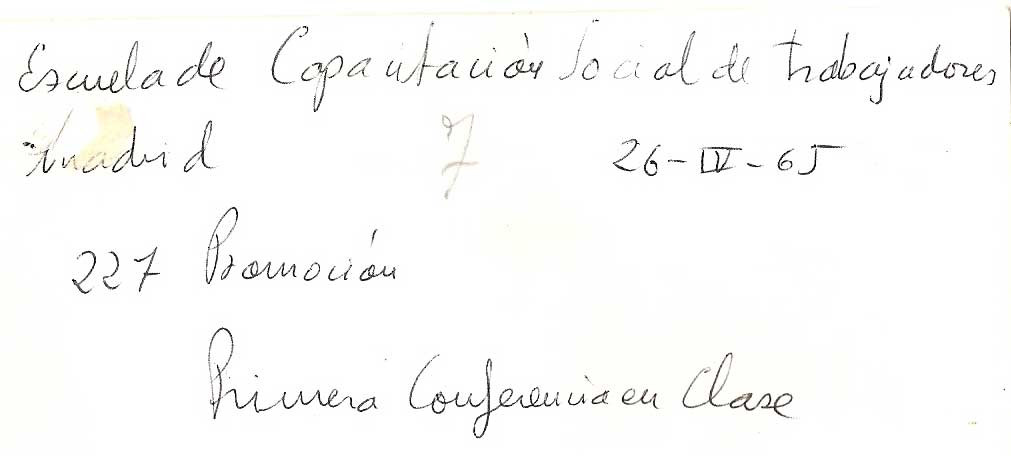 Escuela de Capacitación Social de trabajadores
Madrid 7 26-IV-65
227 Promoción
Primera Conferencia en Clase